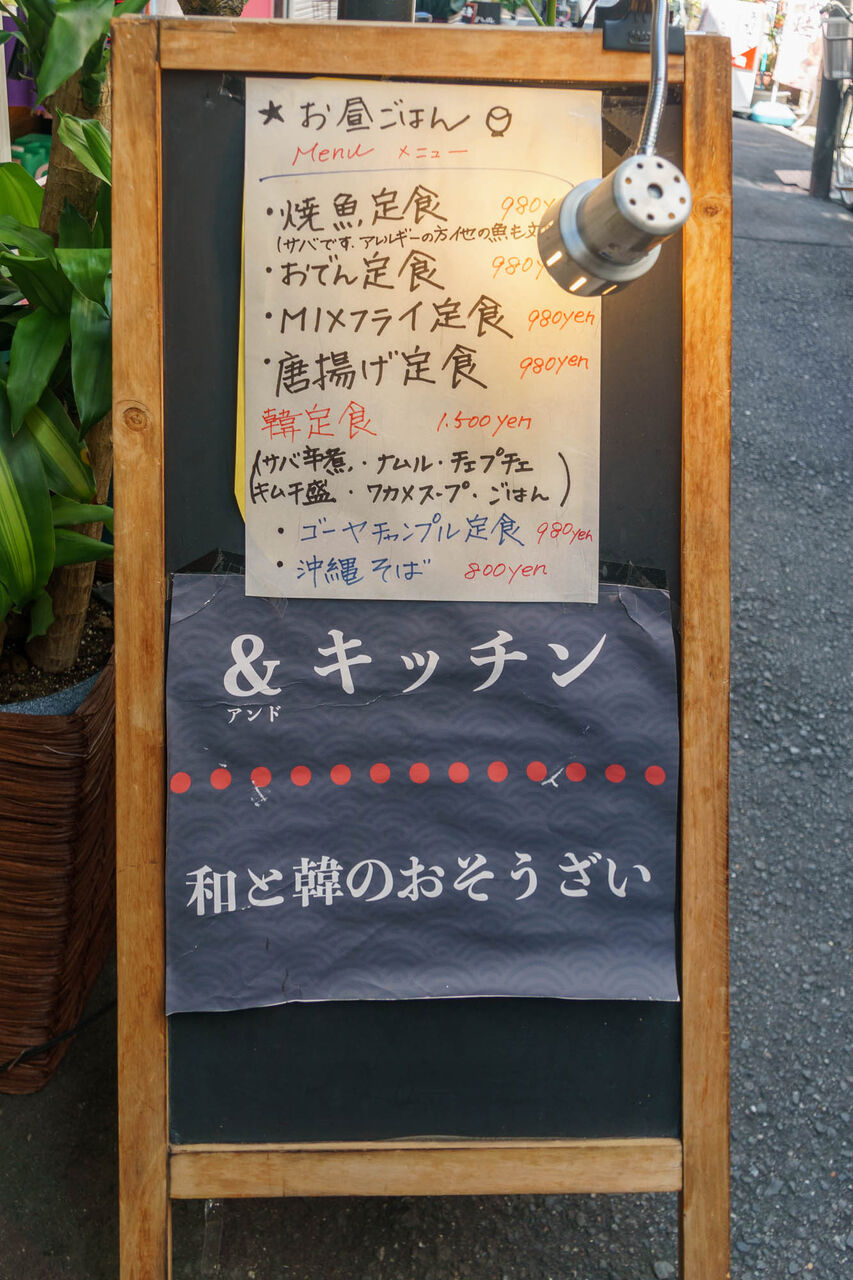 ★お昼ごはん
Menu メニュー
・焼魚定食 980y
(サバです.アレルギーの方他の魚も
・おでん定食 980y
・MIXフライ定食 980yen
・唐揚げ定食 980yen
韓定食 1.500yen
(サバ辛煮.・ナムル・チェプチェ
キムチ盛・ワカメスープ・ごはん)
・ゴーヤチャンプル定食 980yen
・沖縄そば 800yen
&キッチン
アンド
和と韓のおそうざい